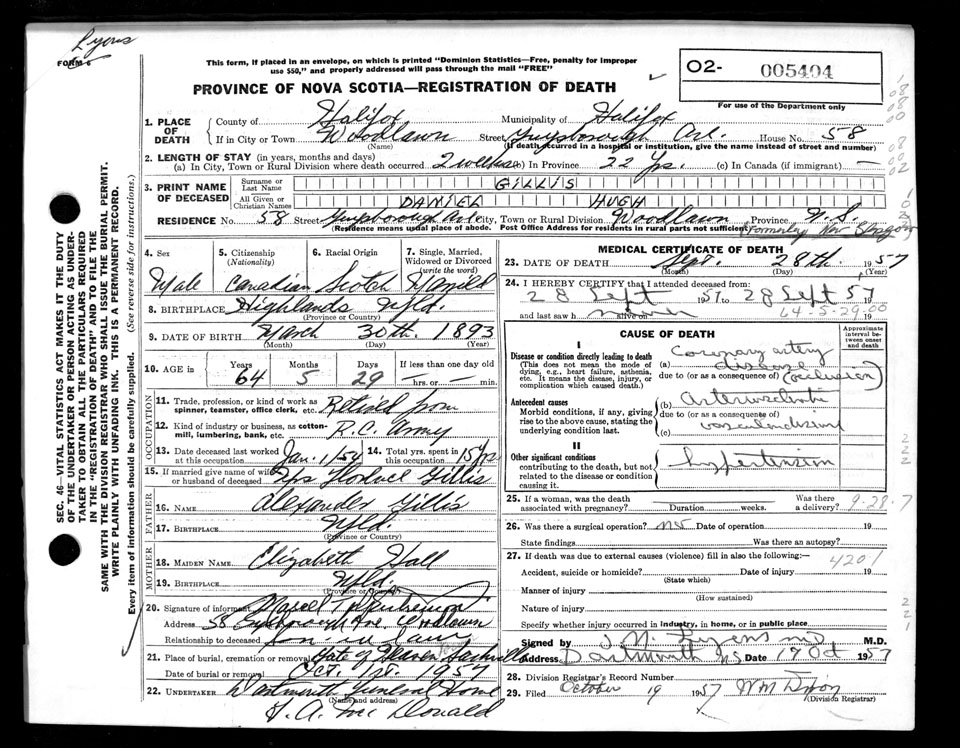 Lyons
FORM 6
This form, if placed in an envelope, on which is printed "Dominion Statistics—Free, penalty for improper
use $50," and properly addressed will pass through the mail "FREE"
PROVINCE OF NOVA SCOTIA—REGISTRATION OF DEATH
O2- 005404
For use of the Department only
1. PLACE OF DEATH
County of Halifax Municipality of Halifax
If in City or Town Woodlawn Street Guysborough Ave. House No. 58
(Name) (If death occurred in a hospital or institution, give the name instead of street and number)
2. LENGTH OF STAY (in years, months and days)
(a) In City, Town or Rural Division where death occurred 2 weeks (b) In Province 22 Yrs. (c) In Canada (if immigrant) —
3. PRINT NAME OF DECEASED
Surname or Last Name GILLIS
All Given or Christian Names DANIEL HUGH
RESIDENCE No. 58 Street Guysborough Ave City, Town or Rural Division Woodlawn Province N.S.
(Residence means usual place of abode. Post Office Address for residents in rural parts not sufficient) (Formerly New Glasgow)
4. Sex
Male
5. Citizenship (Nationality)
Canadian
6. Racial Origin
Scotch
7. Single, Married, Widowed or Divorced (write the word)
Married
8. BIRTHPLACE Highlands Nfld.
(Province or Country)
9. DATE OF BIRTH March 30th. 1893
(Month) (Day) (Year)
10. AGE in Years Months Days If less than one day old
64 5 29 — hrs. or — min.
OCCUPATION
11. Trade, profession, or kind of work as spinner, teamster, office clerk, etc. Retired from
12. Kind of industry or business, as cotton-mill, lumbering, bank, etc. R.C. Army
13. Date deceased last worked at this occupation Jan. 1/54
14. Total yrs. spent in this occupation 15 Yrs
15. If married give name of wife or husband of deceased Mrs Gillis
FATHER
16. NAME Alexander Gillis
17. BIRTHPLACE Nfld.
(Province or Country)
MOTHER
18. MAIDEN NAME Elizabeth Hall
19. BIRTHPLACE Nfld.
(Province or Country)
20. Signature of informant
Address 58 Guysborough Ave Woodlawn
Relationship to deceased Son-in-law
21. Place of burial, cremation or removal Gate of Heaven Sackville
Date of burial or removal Oct. 1st. 1957
22. UNDERTAKER Dartmouth Funeral Home
(Name and address)
McDonald
MEDICAL CERTIFICATE OF DEATH
23. DATE OF DEATH Sept. 28th. 1957
(Month) (Day) (Year)
24. I HEREBY CERTIFY that I attended deceased from:
28 Sept 1957 to 28 Sept 57
and last saw h alive on never 19
64-5-29.00
CAUSE OF DEATH
Approximate interval between onset and death
I
Disease or condition directly leading to death
(This does not mean the mode of dying, e.g., heart failure, asthenia, etc. It means the disease, injury, or complication which caused death.)
(a) Coronary artery disease
due to (or as a consequence of) (occlusion)
Antecedent causes
Morbid conditions, if any, giving rise to the above cause, stating the underlying condition last.
(b)
due to (or as a consequence of)
(c)
II
Other significant conditions
contributing to the death, but not related to the disease or condition causing it.
hypertension
25. If a woman, was the death associated with pregnancy? Duration weeks. Was there a delivery? 9-28-7
26. Was there a surgical operation? no Date of operation 19
State findings Was there an autopsy?
27. If death was due to external causes (violence) fill in also the following:—
4201
Accident, suicide or homicide? Date of injury 19
(State which)
Manner of injury
(How sustained)
Nature of injury
Specify whether injury occurred in industry, in home, or in public place
Signed by Lyons MD M.D.
Address Dartmouth NS Date 17 Oct 1957
28. Division Registrar's Record Number
29. Filed October 19 1957 Wm
(Division Registrar)
SEC. 46—VITAL STATISTICS ACT MAKES IT THE DUTY
OF THE UNDERTAKER OR PERSON ACTING AS UNDERTAKER TO OBTAIN ALL THE PARTICULARS REQUIRED
IN THE "REGISTRATION OF DEATH" AND TO FILE THE
SAME WITH THE DIVISION REGISTRAR WHO SHALL ISSUE THE BURIAL PERMIT.
WRITE PLAINLY WITH UNFADING INK. THIS IS A PERMANENT RECORD.
Every item of information should be carefully supplied. (See reverse side for instructions.)